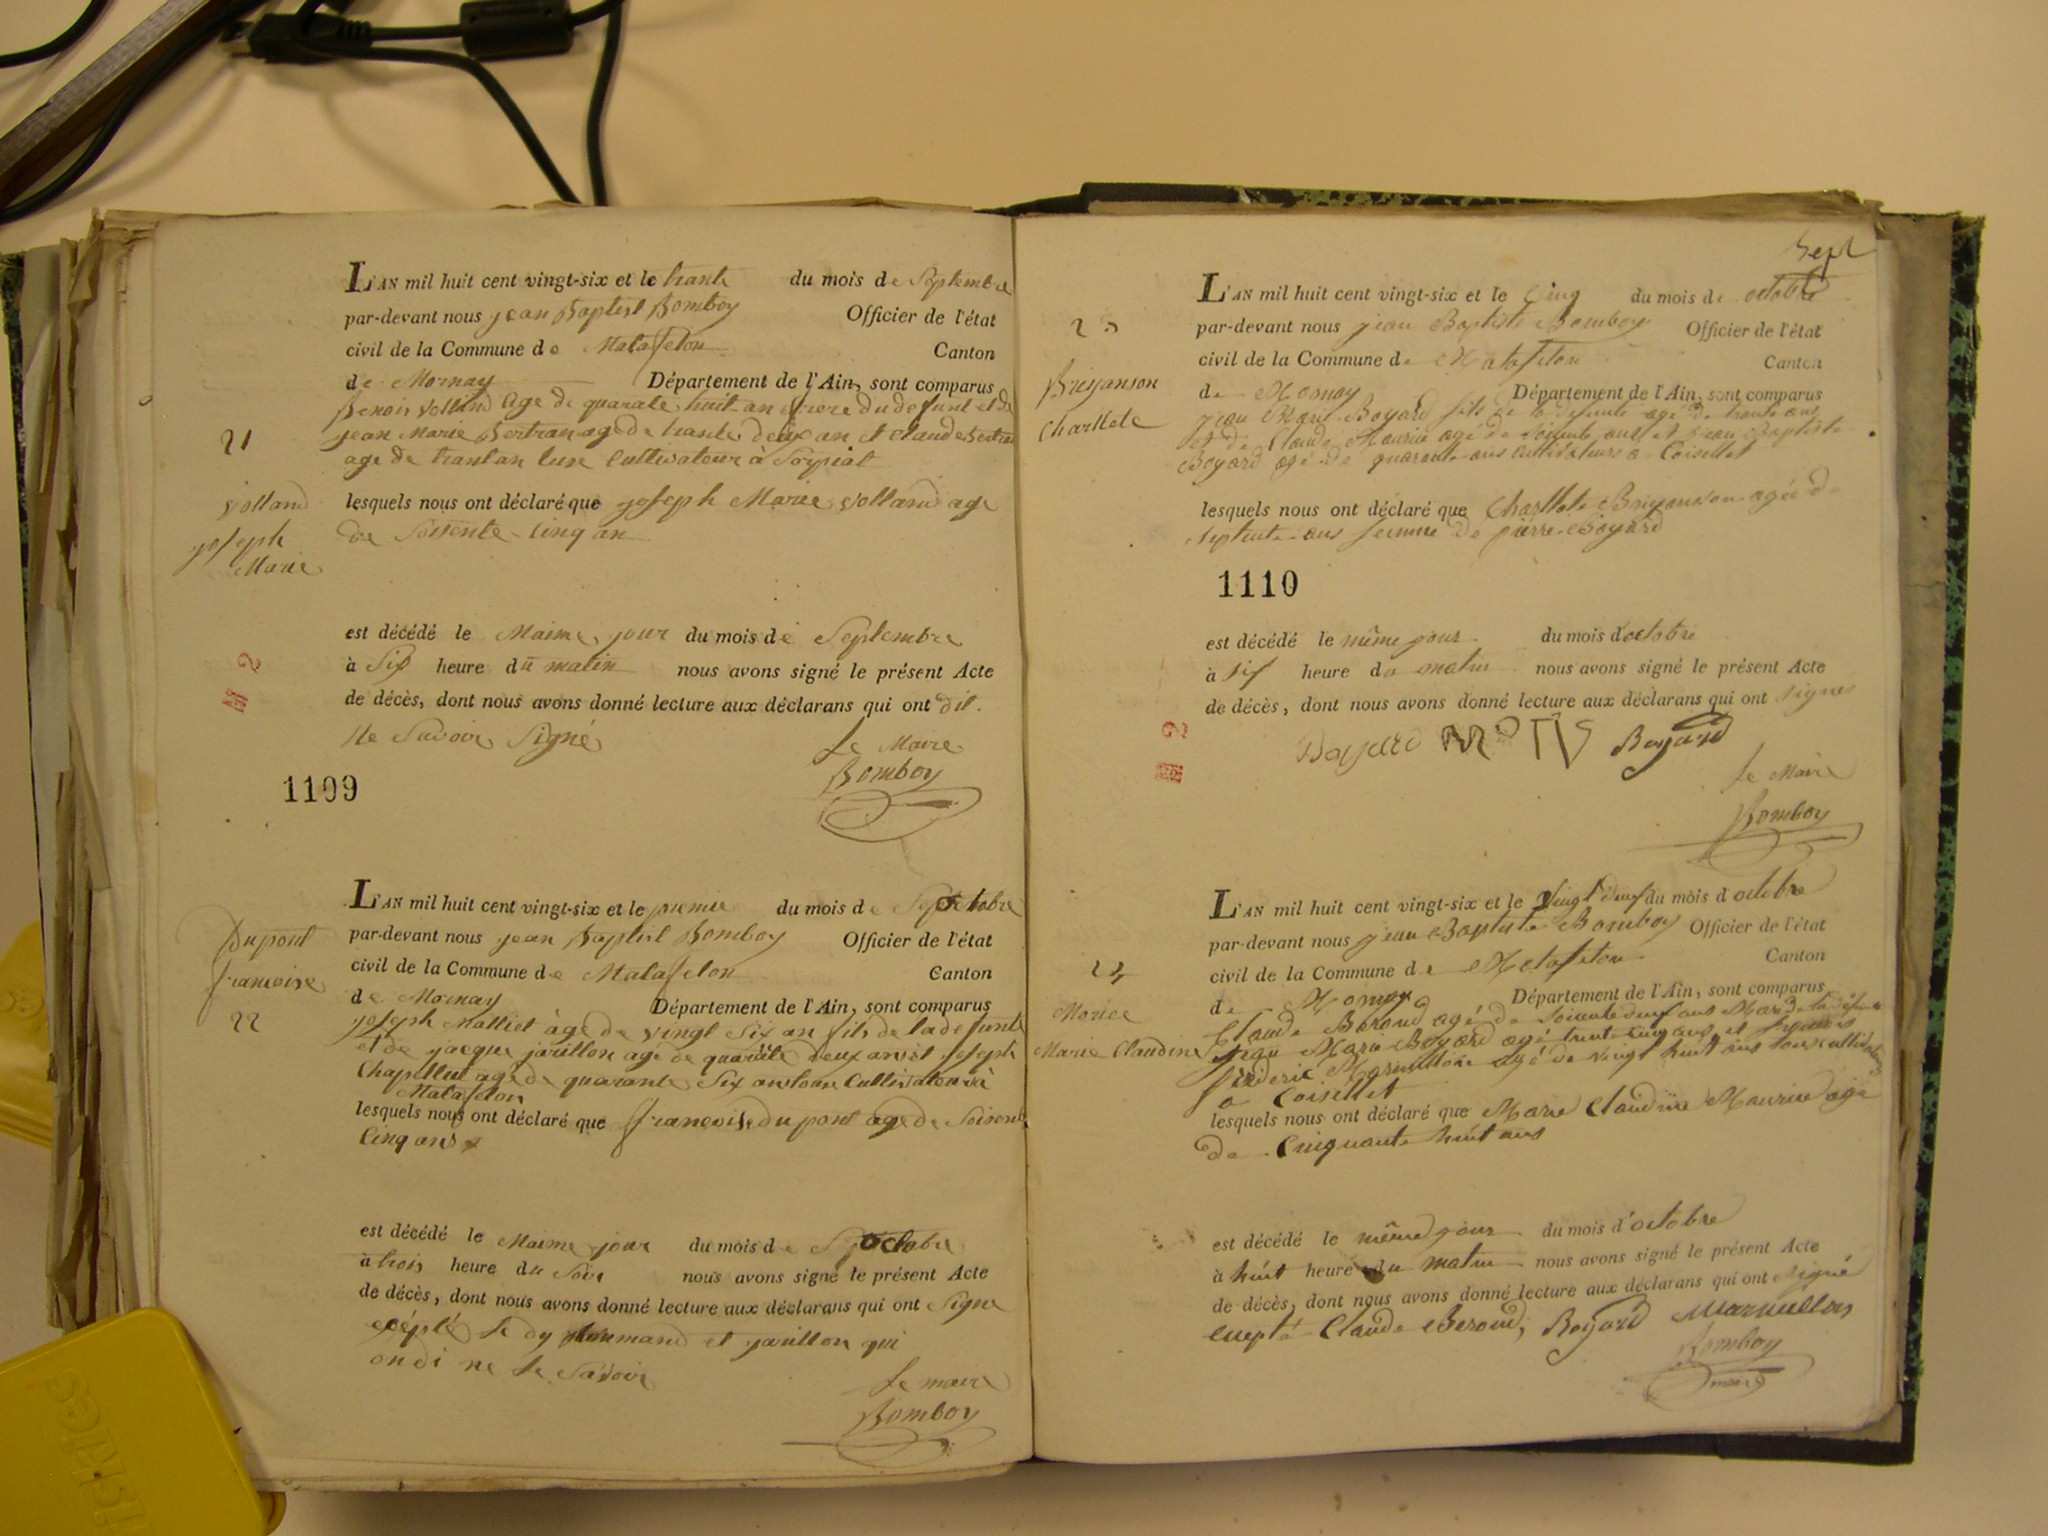 L'AN mil huit cent vingt-six et le trante du mois de Septembre
par-devant nous jean Baptist Bomboy Officier de l'état
civil de la Commune de Matafelon Canton
de Mornay Département de l'Ain, sont comparus
Benois Volland age de quarate huit an frere du defunt et de
jean Marie Bertran age de trante deux an et Claude Bertran
age de trant an tuse Cultivateur à Sorpiat
21
Volland
joseph
Marie
lesquels nous ont déclaré que joseph Marie Volland age
de Soisente Cinq an
est décédé le Maime jour du mois de Septembre
à Six heure du matin nous avons signé le présent Acte
de décès, dont nous avons donné lecture aux déclarans qui ont dit
Ne Savoir Signé
Le Maire
Bomboy
1109
L'AN mil huit cent vingt-six et le premie du mois de Octobre
par-devant nous jean Baptist Bomboy Officier de l'état
civil de la Commune de Matafelon Canton
de Mornay Département de l'Ain, sont comparus
Dupont
francoise
22
joseph Mattiet àge de vingt Six an fils de la defunte
et de jacque jarillon age de quarate deux an et joseph
Chapellut agé de quarante Six an tous Cultivateur à
Matafelon
lesquels nous ont déclaré que francoise du pont age de Soisente
Cinq ans
est décédé le Maime jour du mois de Octobre
à trois heure du Soir nous avons signé le présent Acte
de décès, dont nous avons donné lecture aux déclarans qui ont Signe
exépté le dy et jarillon qui
on di ne le Savoir
Le maire
Bomboy
Sept
L'AN mil huit cent vingt-six et le Cinq du mois de octobre
par-devant nous jean Baptiste Bomboy Officier de l'état
civil de la Commune de Matafelon Canton
de Mornay Département de l'Ain, sont comparus
23
Brisanson
Charllote
jean Marie Boyard fils de la défunte agé de trente ans
et de Claude Maurice agé de soixante ans et jean Baptiste
Boyard agé de quarante ans cultivateurs a Coisellet
lesquels nous ont déclaré que Charllote Brisanson agée de
septente ans femme de pierre Boyard
1110
est décédé le même jour du mois d'octobre
à six heure du matin nous avons signé le présent Acte
de décès, dont nous avons donné lecture aux déclarans qui ont signés
Boyard
Le Maire
Bomboy
L'AN mil huit cent vingt-six et le Vingt deux du mois d octobre
par-devant nous jean Baptiste Bomboy Officier de l'état
civil de la Commune de Matafelon Canton
de Mornay Département de l'Ain, sont comparus
24
Morice
Marie Claudine
Claude Beroud agé de soixante deux ans Mari de la défunte
jean Marie Boyard agé trente cinq ans et françois
fréderic Marmillon agé de vingt huitt ans tous cultivateurs
a Coisellet
lesquels nous ont déclaré que Marie Claudine Maurice agé
de Cinquante huit ans
est décédé le même jour du mois d'octobre
à huit heure du matin nous avons signé le présent Acte
de décès, dont nous avons donné lecture aux déclarans qui ont signé
cuepté Claude Beroud, Boyard Marmillon
Bomboy
maire